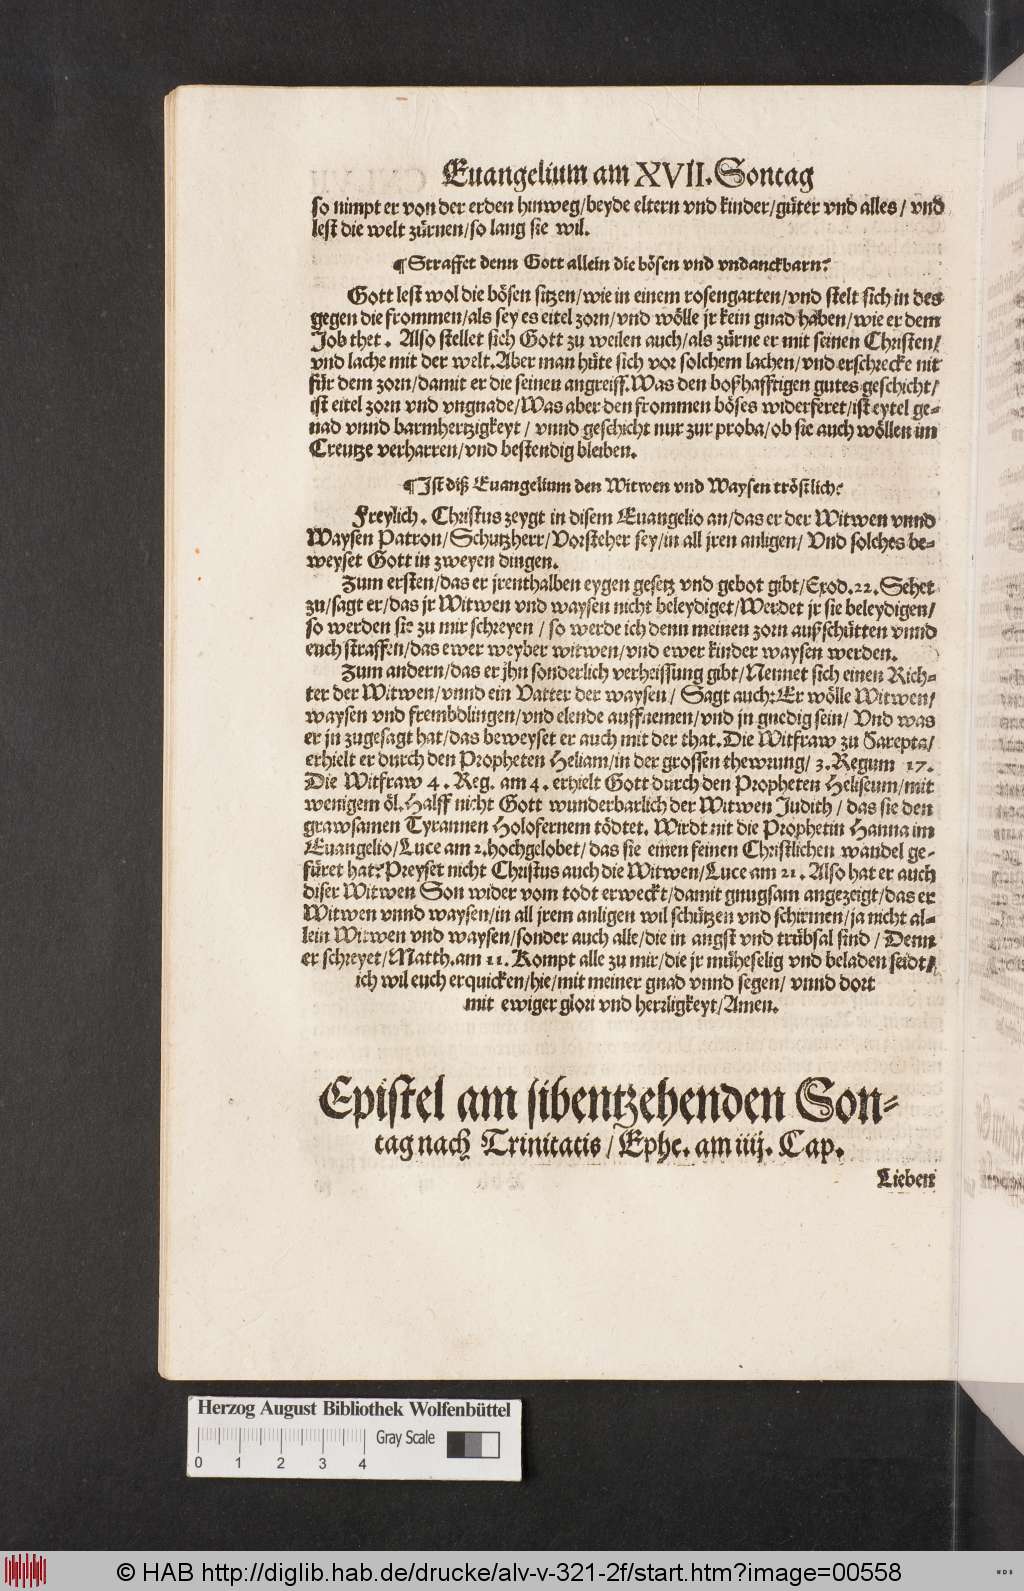 Euangelium am XVII. Sontag
so nimpt er von der erden hinweg/beyde eltern vnd kinder/güter vnd alles/ vnd
lest die welt zürnen/so lang sie wil.
¶ Straffet denn Gott allein die bösen vnd vndanckbarn?
Gott lest wol die bösen sitzen/wie in einem rosengarten/vnd stelt sich in des
gegen die frommen/als sey es eitel zorn/vnd wölle jr kein gnad haben/wie er dem
Job thet. Also stellet sich Gott zu weilen auch/als zürne er mit seinen Christen/
vnd lache mit der welt. Aber man hüte sich vor solchem lachen/vnd erschrecke nit
für dem zorn/damit er die seinen angreiff. Was den boßhafftigen gutes geschicht/
ist eitel zorn vnd vngnade/Was aber den frommen böses widerferet/ist eytel ge-
nad vnnd barmhertzigkeyt/ vnnd geschicht nur zur proba/ob sie auch wöllen im
Creutze verharren/vnd bestendig bleiben.
¶ Ist diß Euangelium den Witwen vnd Waysen tröstlich?
Freylich. Christus zeygt in disem Euangelio an/das er der Witwen vnnd
Waysen Patron/Schutzherr/Vorsteher sey/in all jren anligen/ Vnd solches be-
weyset Gott in zweyen dingen.
Zum ersten/das er jrenthalben eygen gesetz vnd gebot gibt/Exod.22. Sehet
zu/sagt er/das jr Witwen vnd waysen nicht beleydiget/Werdet jr sie beleydigen/
so werden sie zu mir schreyen/ so werde ich denn meinen zorn außschütten vnnd
euch straffen/das ewer weyber witwen/vnd ewer kinder waysen werden.
Zum andern/das er jhn sonderlich verheissung gibt/Nennet sich einen Rich-
ter der Witwen/vnnd ein Vatter der waysen/ Sagt auch: Er wölle Witwen/
waysen vnd frembdlingen/vnd elende auffnemen/vnd jn gnedig sein/ Vnd was
er jn zugesagt hat/das beweyset er auch mit der that. Die Witfraw zu Sarepta/
erhielt er durch den Propheten Heliam/in der grossen thewrung/ 3. Regum 17.
Die Witfraw 4. Reg. am 4. erhielt Gott durch den Propheten Heliseum/mit
wenigem öl. Halff nicht Gott wunderbarlich der Witwen Judith/ das sie den
grawsamen Tyrannen Holofernem tödtet. Wirdt nit die Prophetin Hanna im
Euangelio/Luce am 2. hochgelobet/das sie einen feinen Christlichen wandel ge-
füret hat? Preyset nicht Christus auch die Witwen/Luce am 21. Also hat er auch
diser Witwen Son wider vom todt erweckt/damit gnugsam angezeigt/das er
Witwen vnnd waysen/in all jrem anligen wil schützen vnd schirmen/ja nicht al-
lein Witwen vnd waysen/sonder auch alle/die in angst vnd trübsal sind/ Denn
er schreyet/Matth. am 11. Kompt alle zu mir/die jr müheselig vnd beladen seidt/
ich wil euch erquicken/hie/mit meiner gnad vnnd segen/ vnnd dort
mit ewiger glori vnd herrligkeyt/Amen.
Epistel am sibentzehenden Son-
tag nach Trinitatis/Ephe. am iiij. Cap.
Lieben
Herzog August Bibliothek Wolfenbüttel
Gray Scale
0 1 2 3 4
© HAB http://diglib.hab.de/drucke/alv-v-321-2f/start.htm?image=00558